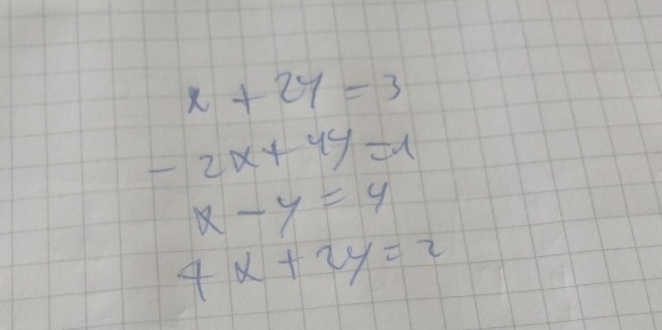 x + 2y = 3
- 2x + 4y = 1
x - y = 4
4x + 2y = 2